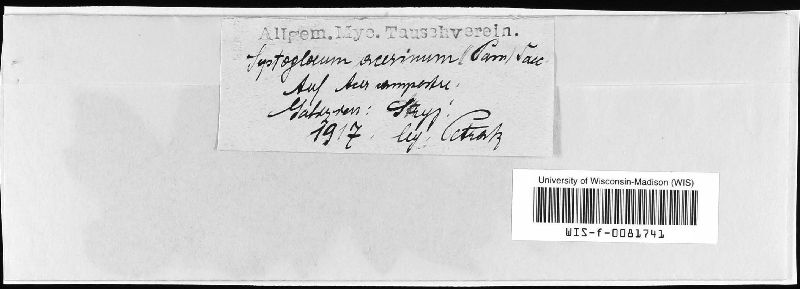 Allgem. Myc. Tauschverein.
Septogloeum acerinum (Pass) Sacc.
Auf Acer campestre.
Galizien: Stryj.
1917. leg. Petrak
University of Wisconsin-Madison (WIS)
WIS-f-0081741